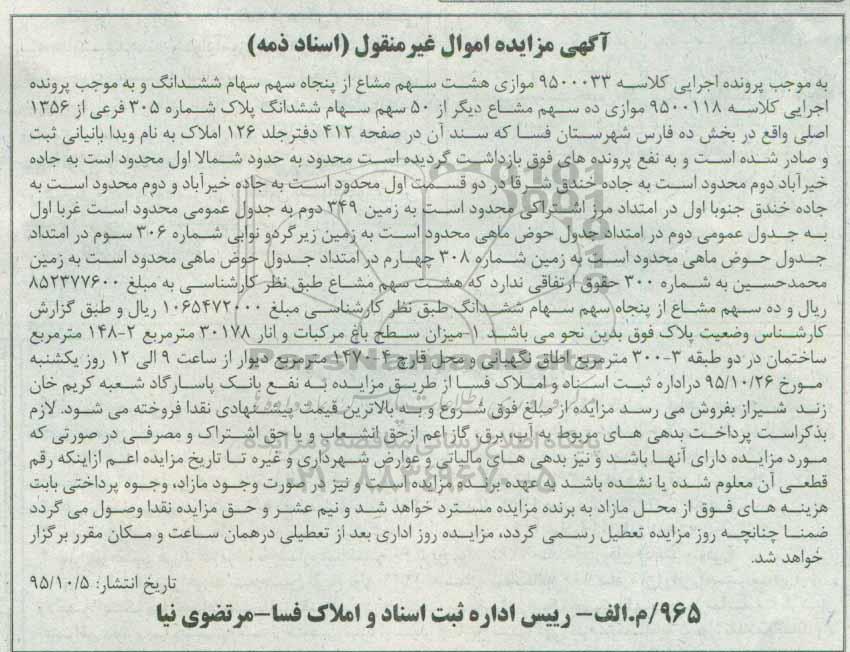 آگهی مزایده اموال غیرمنقول (اسناد ذمه)
به موجب پرونده اجرایی کلاسه ۹۵۰۰۰۳۳ موازی هشت سهم مشاع از پنجاه سهم سهام ششدانگ و به موجب پرونده
اجرایی کلاسه ۹۵۰۰۱۱۸ موازی ده سهم مشاع دیگر از ۵۰ سهم سهام ششدانگ پلاک شماره ۳۰۵ فرعی از ۱۳۵۶
اصلی واقع در بخش ده فارس شهرستان فسا که سند آن در صفحه ۴۱۲ دفترجلد ۱۲۶ املاک به نام ویدا بانیانی ثبت
و صادر شده است و به نفع پرونده های فوق بازداشت گردیده است محدود به حدود شمالا اول محدود است به جاده
خیرآباد دوم محدود است به جاده خندق شرقا در دو قسمت اول محدود است به جاده خیرآباد و دوم محدود است به
جاده خندق جنوبا اول در امتداد مرز اشتراکی محدود است به زمین ۳۴۹ دوم به جدول عمومی محدود است غربا اول
به جدول عمومی دوم در امتداد جدول حوض ماهی محدود است به زمین زیرگردو نوابی شماره ۳۰۶ سوم در امتداد
جدول حوض ماهی محدود است به زمین شماره ۳۰۸ چهارم در امتداد جدول حوض ماهی محدود است به زمین
محمدحسین به شماره ۳۰۰ حقوق ارتفاقی ندارد که هشت سهم مشاع طبق نظر کارشناسی به مبلغ ۸۵۲۳۷۷۶۰۰
ریال و ده سهم مشاع از پنجاه سهم سهام ششدانگ طبق نظر کارشناسی مبلغ ۱۰۶۵۴۷۲۰۰۰ ریال و طبق گزارش
کارشناس وضعیت پلاک فوق بدین نحو می باشد ۱-میزان سطح باغ مرکبات و انار ۳۰۱۷۸ مترمربع ۲-۱۴۸ مترمربع
ساختمان در دو طبقه ۳-۳۰۰ مترمربع اطاق نگهبانی و محل قارچ ۴-۱۴۷۰ مترمربع دیوار از ساعت ۹ الی ۱۲ روز یکشنبه
مورخ ۹۵/۱۰/۲۶ دراداره ثبت اسناد و املاک فسا از طریق مزایده به نفع بانک پاسارگاد شعبه کریم خان
زند شیراز بفروش می رسد مزایده از مبلغ فوق شروع و به بالاترین قیمت پیشنهادی نقدا فروخته می شود. لازم
بذکراست پرداخت بدهی های مربوط به آب، برق، گاز اعم ازحق انشعاب و یا حق اشتراک و مصرفی در صورتی که
مورد مزایده دارای آنها باشد و نیز بدهی های مالیاتی و عوارض شهرداری و غیره تا تاریخ مزایده اعم ازاینکه رقم
قطعی آن معلوم شده یا نشده باشد به عهده برنده مزایده است و نیز در صورت وجود مازاد، وجوه پرداختی بابت
هزینه های فوق از محل مازاد به برنده مزایده مسترد خواهد شد و نیم عشر و حق مزایده نقدا وصول می گردد
ضمنا چنانچه روز مزایده تعطیل رسمی گردد، مزایده روز اداری بعد از تعطیلی درهمان ساعت و مکان مقرر برگزار
خواهد شد.
تاریخ انتشار: ۹۵/۱۰/۵
۹۶۵/م.الف- رییس اداره ثبت اسناد و املاک فسا-مرتضوی نیا
ParsNamadData
۰۲۱-۸۸۳۴۹۶۷۰-۵